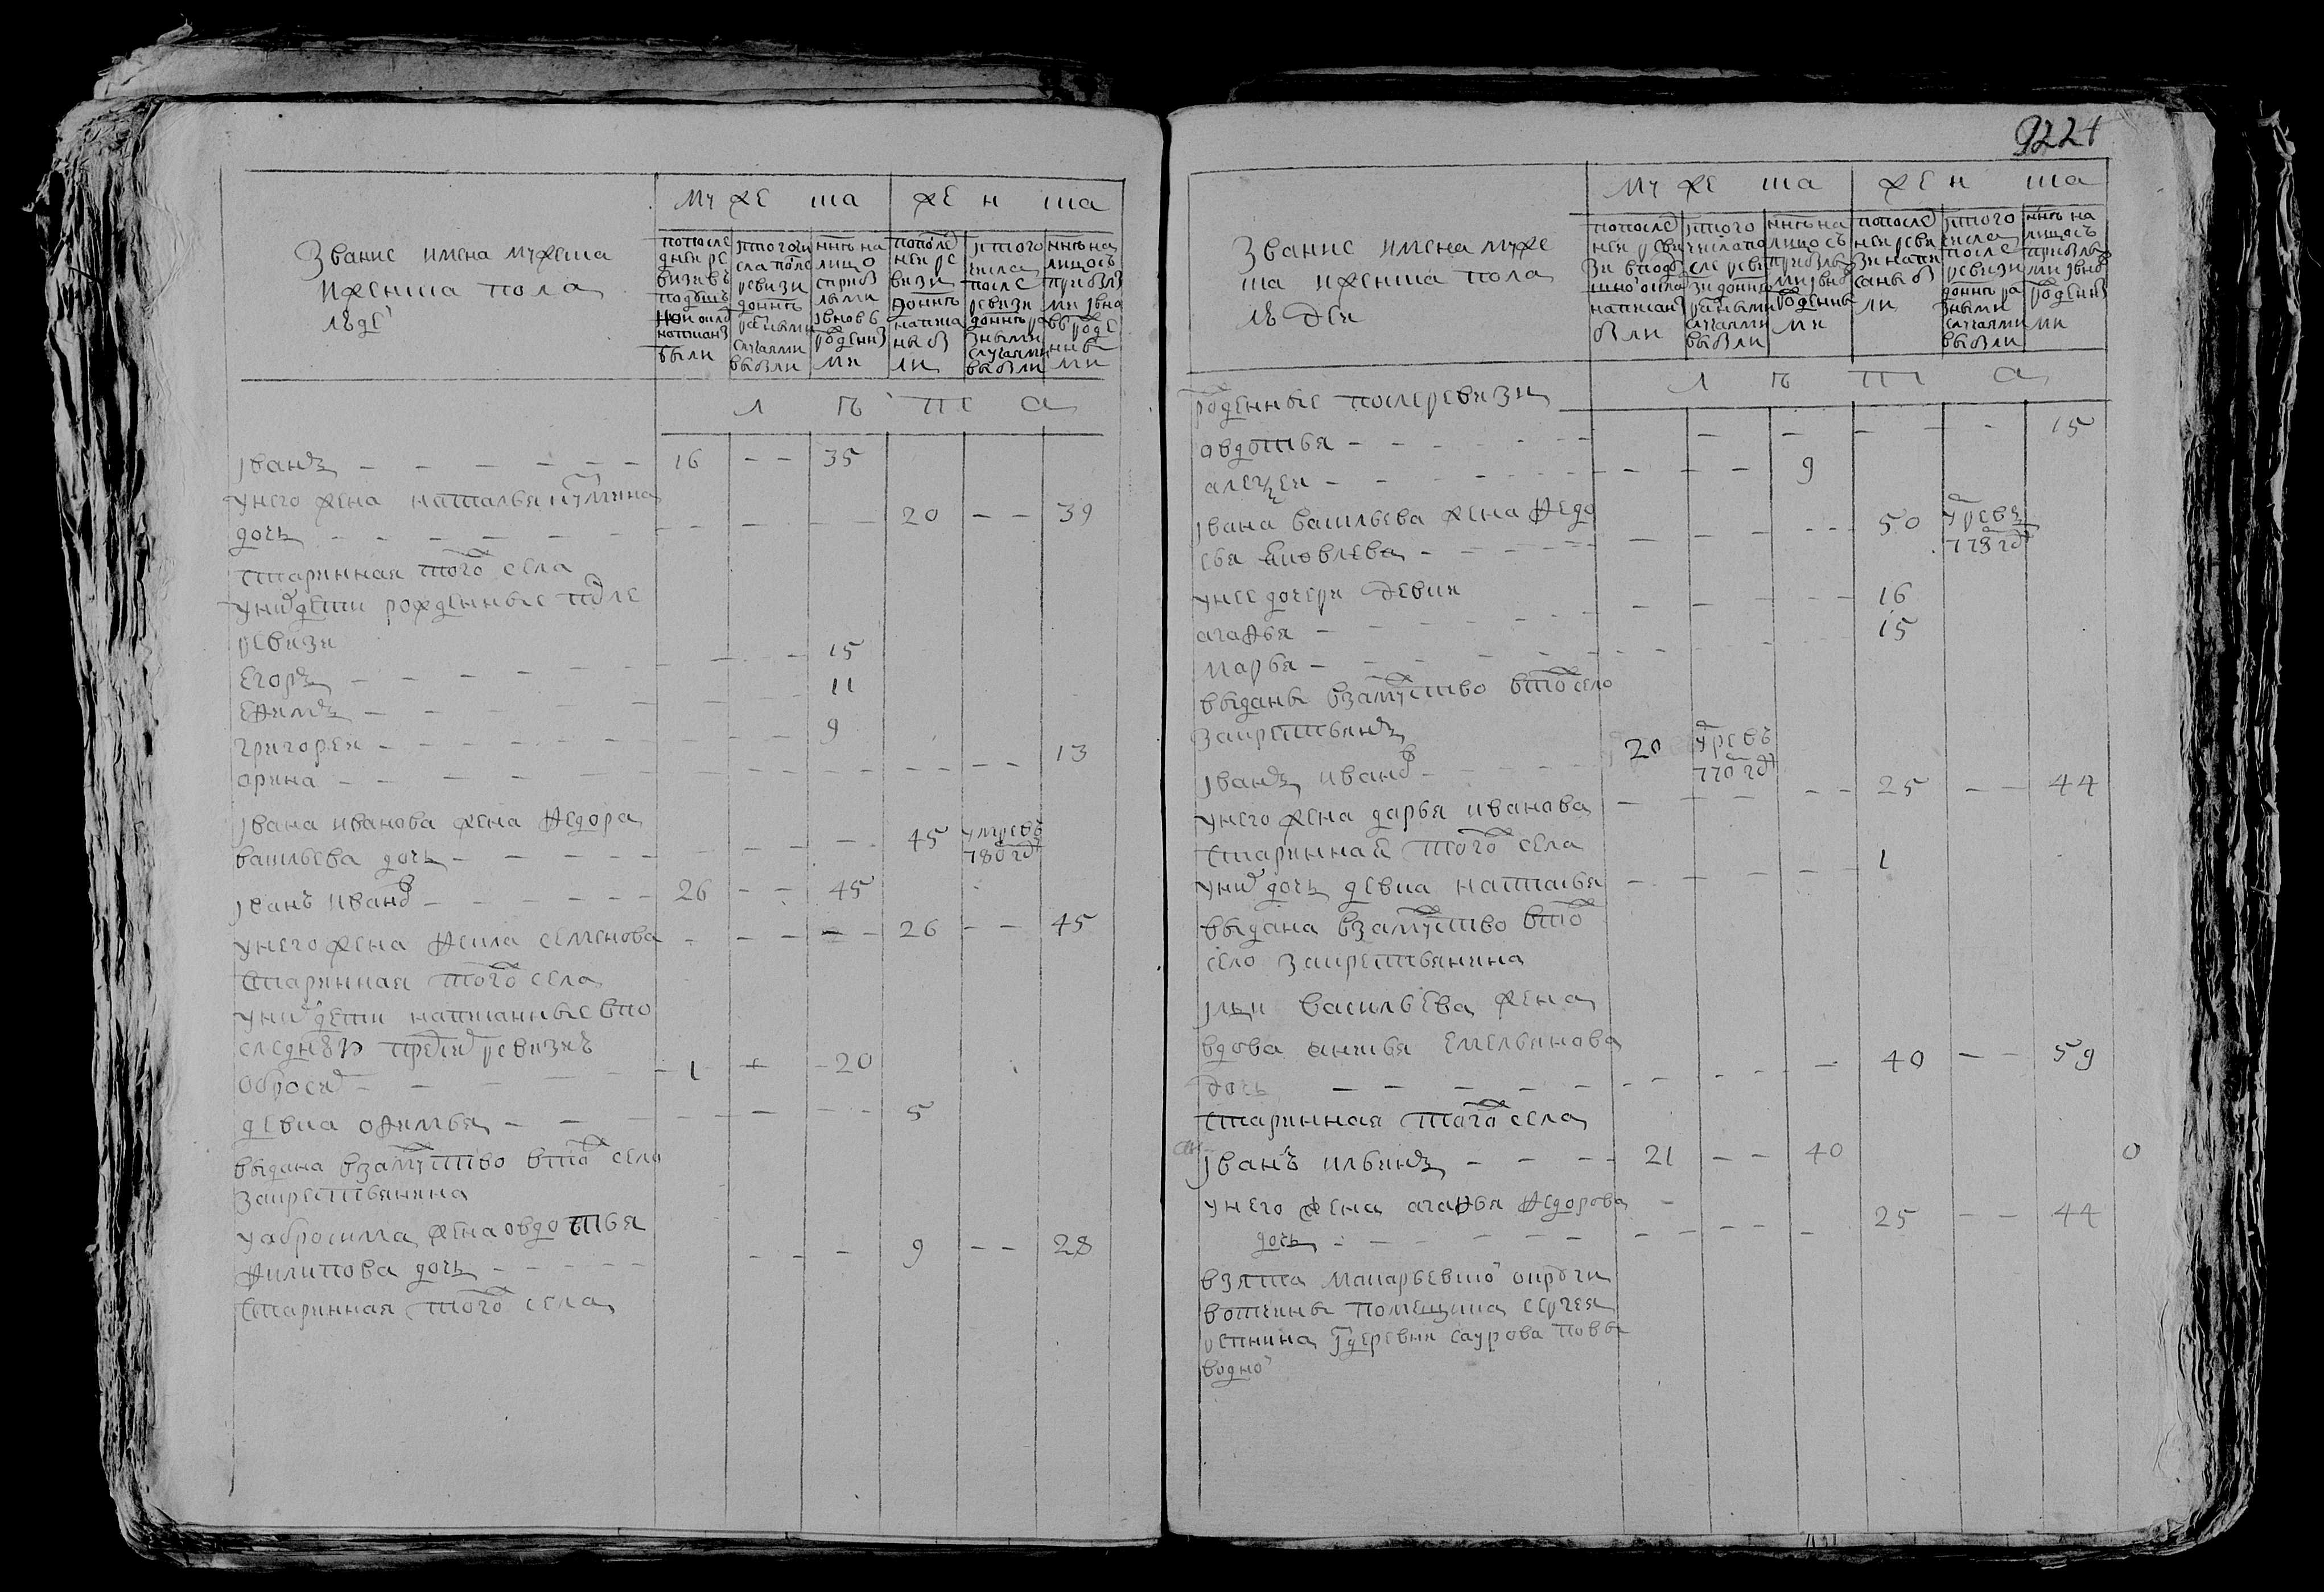 Звание имена мужеска
иженска пола
лъде
муже ска
жен ска
попосле
дней ре
визи въ
подушъ
ной окла
написанъ
были
ис того чи
сла после
ревизи
донынѣ
разными
случаями
выбыли
ннѣ на
лицо
с прибы
лыми
и вновъ
рожденны
ми
попослѣ
ней ре
визи
донынѣ
написа
ны бы
ли
ис того
числа
после
ревизи
донынѣ ра
зными
случаями
выбыли
ннѣ на
лицосъ
прибылы
ми и вно
въ рожде
нны
ми
л ѣ т а
Iванъ — — — — — — 16 — — 35
унего жена наталья кузмина
дочь — — — — — — — — — 20 — — 39
старинная того села
уних дети рожденные после
ревизи
Егоръ — — — — — — — 15
Ефимъ — — — — — 11
григорей — — — — — — — 9
орина — — — — — — — — — — — — 13
Iвана иванова жена федора
васильева дочь — — — — — — — 45 умре въ
780 год
Iванъ иванов — — — — — 26 — — 45
унего жена фекла семенова — — — — — 26 — — 45
старинная того села
уних дети написанные впо
следней пред сей ревизиѣ
обросим — — — — — 1 — — 20
девка офимья — — — — — — — — 5
выдана взамуство втож село
закрестьянина
уабросима жена овдотья
филипова дочь — — — — — — — — 9 — — 28
старинная того села
9224
Звание имена муже
ска иженска пола
лъ дей
муже ска
жен ска
попослед
ней реви
зи вподу
шной окла
написан
были
ис того
числа по
сле реви
зи донынѣ
разными
случаями
выбыли
ннѣ на
лицо съ
прибылы
ми и внов
рожденны
ми
попослед
ней реви
зи напи
саны бы
ли
ис того
числа
после
ревизи
донынѣ ра
зными
случаями
выбыли
ннѣ на
лицосъ
прибылы
ми и вно
рожденны
ми
л ѣ т а
рожденные послеревизи
овдотья — — — — — — — — — — — 15
алеѯей — — — — — — — — — 9
Iвана васильева жена федо
сья яковлева — — — — — — — — — — 50 умре въ
778 год
унее дочери девки
агафья — — — — — — — — — — 16
марья — — — — — — — — — 15
выданы взамуство втож село
закрестьянъ
Iванъ иванов — — — — 20 умре въ
770 год
унего жена дарья иванова — — — — — 25 — — 44
старинная того села
уних дочь девка наталья — — — — — 1
выдана взамуство втож
село закрестьянина
Iльи васильева жена
вдова анисья емельянова
дочь — — — — — — — — — — 40 — — 59
старинная того села
Iванъ ильинъ — — — — 21 — — 40 0
унего жена агафья федорова
дочь — — — — — — — — — — 25 — — 44
взята макарьевской округи
вотчины помещика сергея
репнина деревни саурова повы
водной